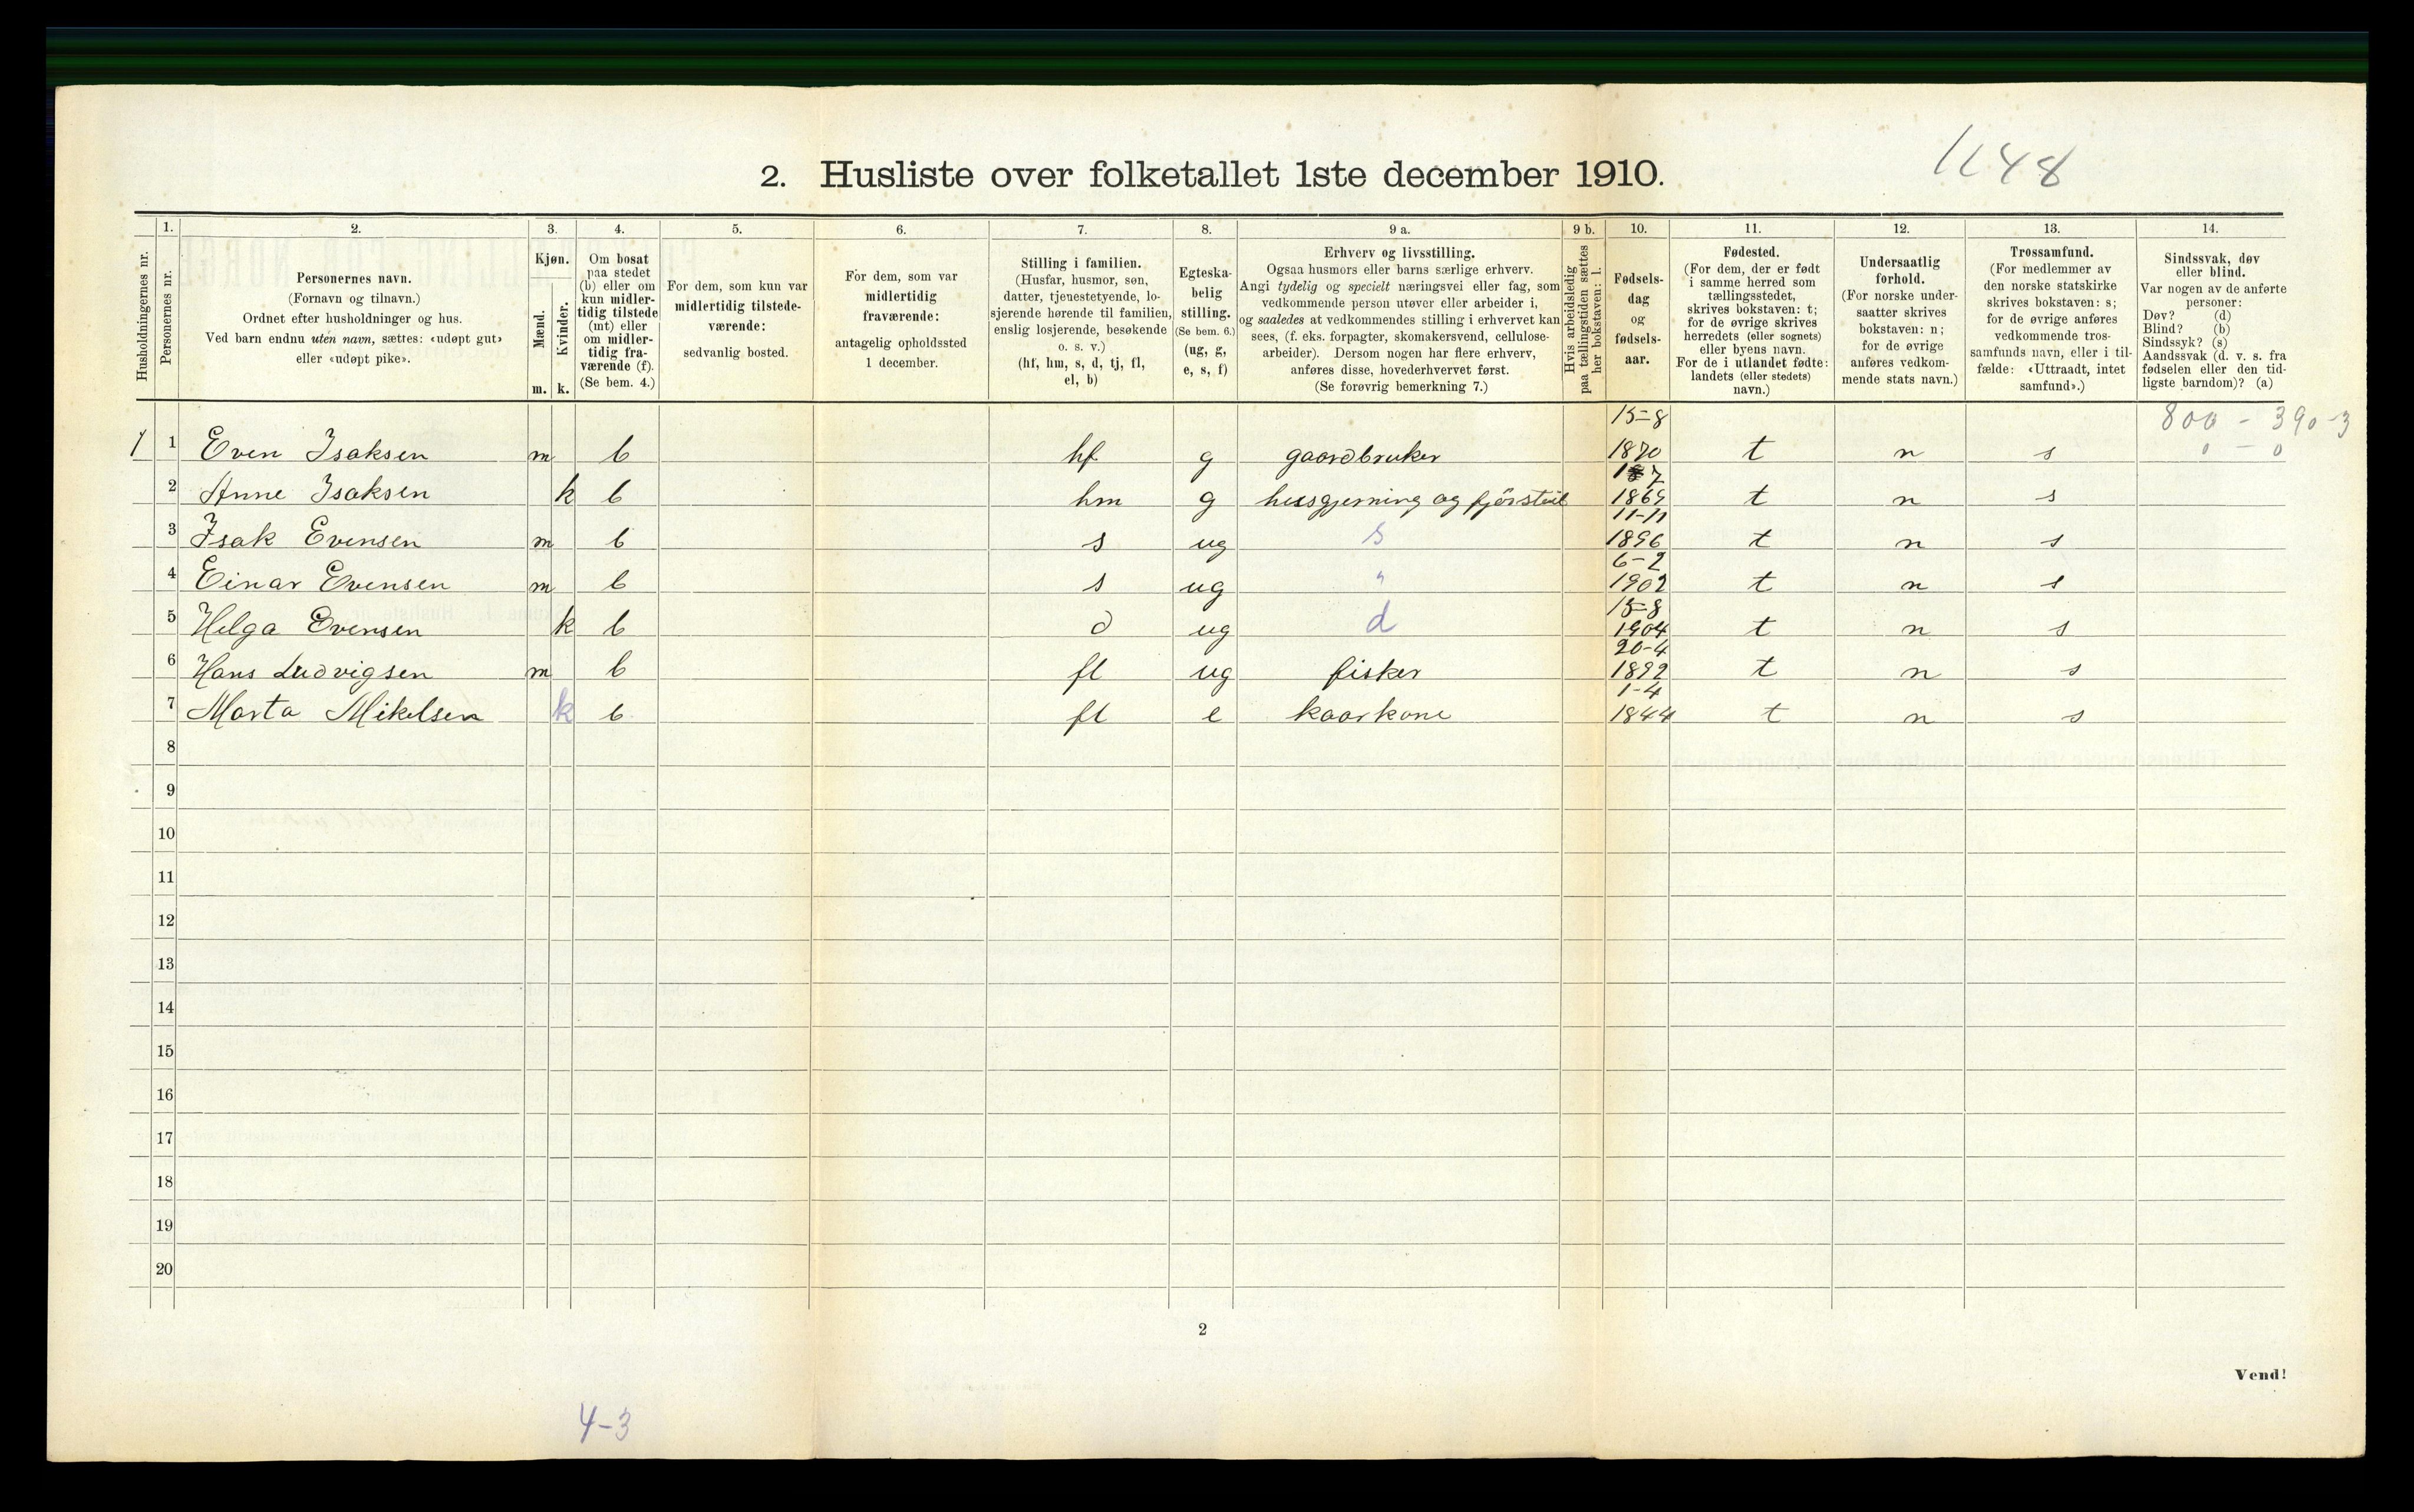 1148
2. Husliste over folketallet 1ste december 1910.
Husholdningernes nr.
1. Personernes nr.
2. Personernes navn.
(Fornavn og tilnavn.)
Ordnet efter husholdninger og hus.
Ved barn endnu uten navn, sættes: «udøpt gut»
eller «udøpt pike».
3. Kjøn.
Mænd. m.
Kvinder. k.
4. Om bosat
paa stedet
(b) eller om
kun midler-
tidig tilstede
(mt) eller
om midler-
tidig fra-
værende (f).
(Se bem. 4.)
5. For dem, som kun var
midlertidig tilstede-
værende:
sedvanlig bosted.
6. For dem, som var
midlertidig
fraværende:
antagelig opholdssted
1 december.
7. Stilling i familien.
(Husfar, husmor, søn,
datter, tjenestetyende, lo-
sjerende hørende til familien,
enslig losjerende, besøkende
o. s. v.)
(hf, hm, s, d, tj, fl,
el, b)
8. Egteska-
belig
stilling.
(Se bem. 6.)
(ug, g,
e, s, f)
9 a. Erhverv og livsstilling.
Ogsaa husmors eller barns særlige erhverv.
Angi tydelig og specielt næringsvei eller fag, som
vedkommende person utøver eller arbeider i,
og saaledes at vedkommendes stilling i erhvervet kan
sees, (f. eks. forpagter, skomakersvend, cellulose-
arbeider). Dersom nogen har flere erhverv,
anføres disse, hovederhvervet først.
(Se forøvrig bemerkning 7.)
9 b. Hvis arbeidsledig
paa tællingstiden sættes
her bokstaven: l.
10. Fødsels-
dag
og
fødsels-
aar.
11. Fødested.
(For dem, der er født
i samme herred som
tællingsstedet,
skrives bokstaven: t;
for de øvrige skrives
herredets (eller sognets)
eller byens navn.
For de i utlandet fødte:
landets (eller stedets)
navn.)
12. Undersaatlig
forhold.
(For norske under-
saatter skrives
bokstaven: n;
for de øvrige
anføres vedkom-
mende stats navn.)
13. Trossamfund.
(For medlemmer av
den norske statskirke
skrives bokstaven: s;
for de øvrige anføres
vedkommende tros-
samfunds navn, eller i til-
fælde: «Uttraadt, intet
samfund».)
14. Sindssvak, døv
eller blind.
Var nogen av de anførte
personer:
Døv? (d)
Blind? (b)
Sindssyk? (s)
Aandssvak (d. v. s. fra
fødselen eller den tid-
ligste barndom)? (a)
800 - 390-3
0 - 0
1 1 Even Isaksen m b hf g gaardbruker 15-8 1870 t n s
2 Anne Isaksen k b hm g husgjerning og fjörstell 7 1865 t n s
3 Isak Evensen m b s ug s 11-11 1896 t n s
4 Einar Evensen m b s ug " 6-2 1902 t n s
5 Helga Evensen k b d ug d 15-8 1904 t n s
6 Hans Ludvigsen m b fl ug fisker 20-4 1892 t n s
7 Marta Mikelsen k b fl e kaarkone 1-4 1844 t n s
8
9
10
11
12
13
14
15
16
17
18
19
20
2
Vend!
4-3